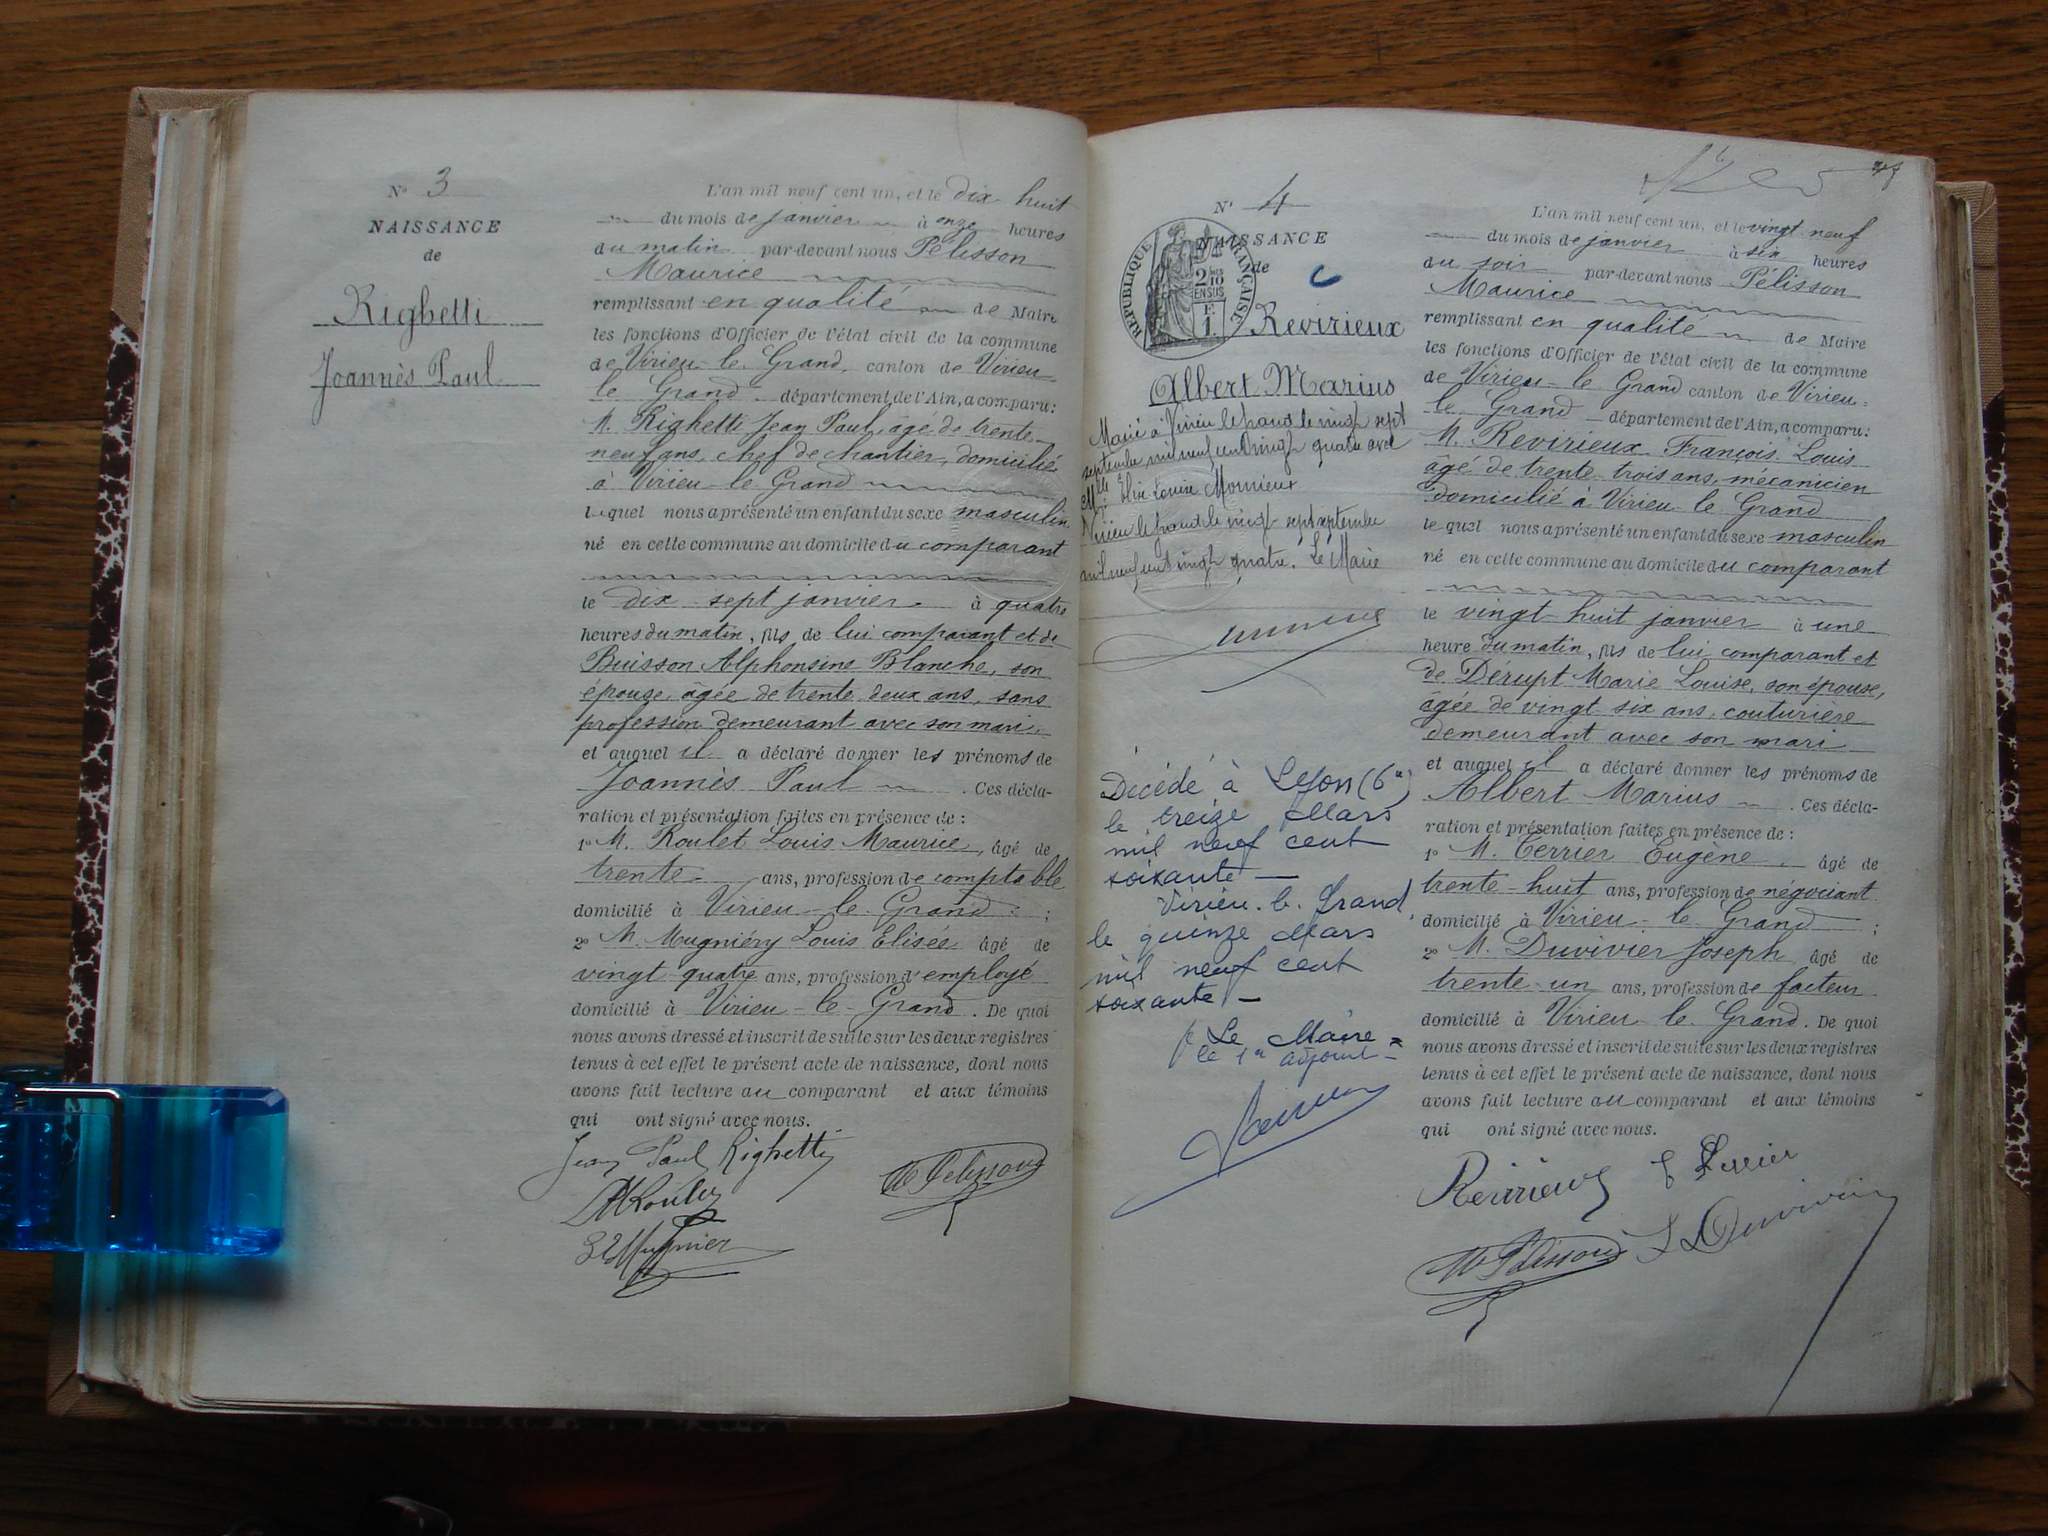 N° 3
NAISSANCE
de
Righetti
Joannès Paul
L'an mil neuf cent un, et le dix huit
du mois de janvier à onze heures
du matin par-devant nous Pélisson
Maurice
remplissant en qualité de Maire
les fonctions d'Officier de l'état civil de la commune
de Virieu-le-Grand, canton de Virieu-
le Grand département de l'Ain, a comparu:
M. Righetti Jean Paul, âgé de trente-
neuf ans, chef de chantier, domicilié
à Virieu-le-Grand
lequel nous a présenté un enfant du sexe masculin
né en cette commune au domicile du comparant
le dix-sept janvier à quatre
heures du matin, fils de lui comparant et de
Buisson Alphonsine Blanche, son
épouse, âgée de trente deux ans, sans
profession demeurant avec son mari,
et auquel il a déclaré donner les prénoms de
Joannès Paul. Ces décla-
ration et présentation faites en présence de:
1° M. Roulet Louis Maurice, âgé de
trente ans, profession de comptable
domicilié à Virieu-le-Grand;
2° M. Mugniéry Louis Elisée âgé de
vingt-quatre ans, profession d'employé
domicilié à Virieu-le-Grand. De quoi
nous avons dressé et inscrit de suite sur les deux registres
tenus à cet effet le présent acte de naissance, dont nous
avons fait lecture au comparant et aux témoins
qui ont signé avec nous.
Jean Paul Righetti
M Pelisson
N° 4
NAISSANCE
de
RÉPUBLIQUE FRANÇAISE
Revirieux
Albert Marius
Marié à Virieu le grand le vingt sept
septembre mil neuf cent vingt quatre avec
Mlle Louise Monnieux
Virieu le grand le vingt sept septembre
mil neuf cent vingt quatre. Le Maire
Décédé à Lyon (6e)
le treize Mars
mil neuf cent
soixante —
Virieu-le-Grand,
le quinze Mars
mil neuf cent
soixante —
p Le Maire
le 1er adjoint
L'an mil neuf cent un, et le vingt neuf
du mois de janvier à six heures
du soir par-devant nous Pélisson
Maurice
remplissant en qualité de Maire
les fonctions d'Officier de l'état civil de la commune
de Virieu-le Grand canton de Virieu-
le Grand département de l'Ain, a comparu:
M. Revirieux François Louis
âgé de trente-trois ans, mécanicien
domicilié à Virieu le Grand
lequel nous a présenté un enfant du sexe masculin
né en cette commune au domicile du comparant
le vingt-huit janvier à une
heure du matin, fils de lui comparant et
de Dérupt Marie Louise, son épouse,
âgée de vingt six ans, couturière
demeurant avec son mari
et auquel il a déclaré donner les prénoms de
Albert Marius. Ces décla-
ration et présentation faites en présence de:
1° M. Terrier Eugène, âgé de
trente-huit ans, profession de négociant
domicilié à Virieu-le-Grand;
2° M. Duvivier Joseph âgé de
trente-un ans, profession de facteur
domicilié à Virieu-le-Grand. De quoi
nous avons dressé et inscrit de suite sur les deux registres
tenus à cet effet le présent acte de naissance, dont nous
avons fait lecture au comparant et aux témoins
qui ont signé avec nous.
Revirieux E Terrier
M Pelisson J Duvivier